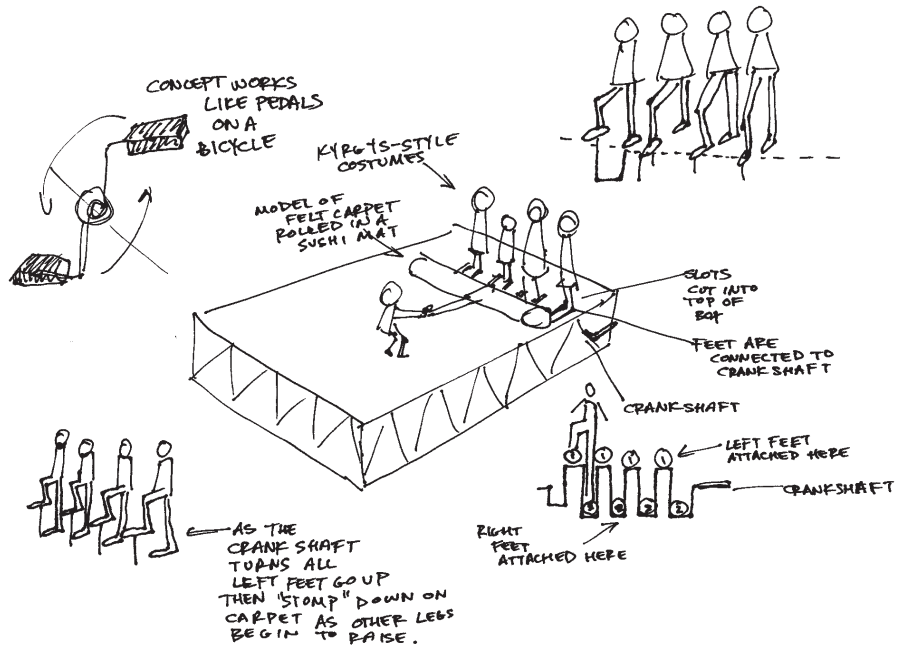 CONCEPT WORKS
LIKE PEDALS
ON A
BICYCLE
KYRGYS-STYLE
COSTUMES
MODEL OF
FELT CARPET
ROLLED IN A
SUSHI MAT
SLOTS
CUT INTO
TOP OF
BOX
FEET ARE
CONNECTED TO
CRANKSHAFT
CRANKSHAFT
LEFT FEET
ATTACHED HERE
1 1 1 1
CRANKSHAFT
2 2 2 2
RIGHT
FEET
ATTACHED HERE
AS THE
CRANK SHAFT
TURNS ALL
LEFT FEET GO UP
THEN "STOMP" DOWN ON
CARPET AS OTHER LEGS
BEGIN TO RAISE.